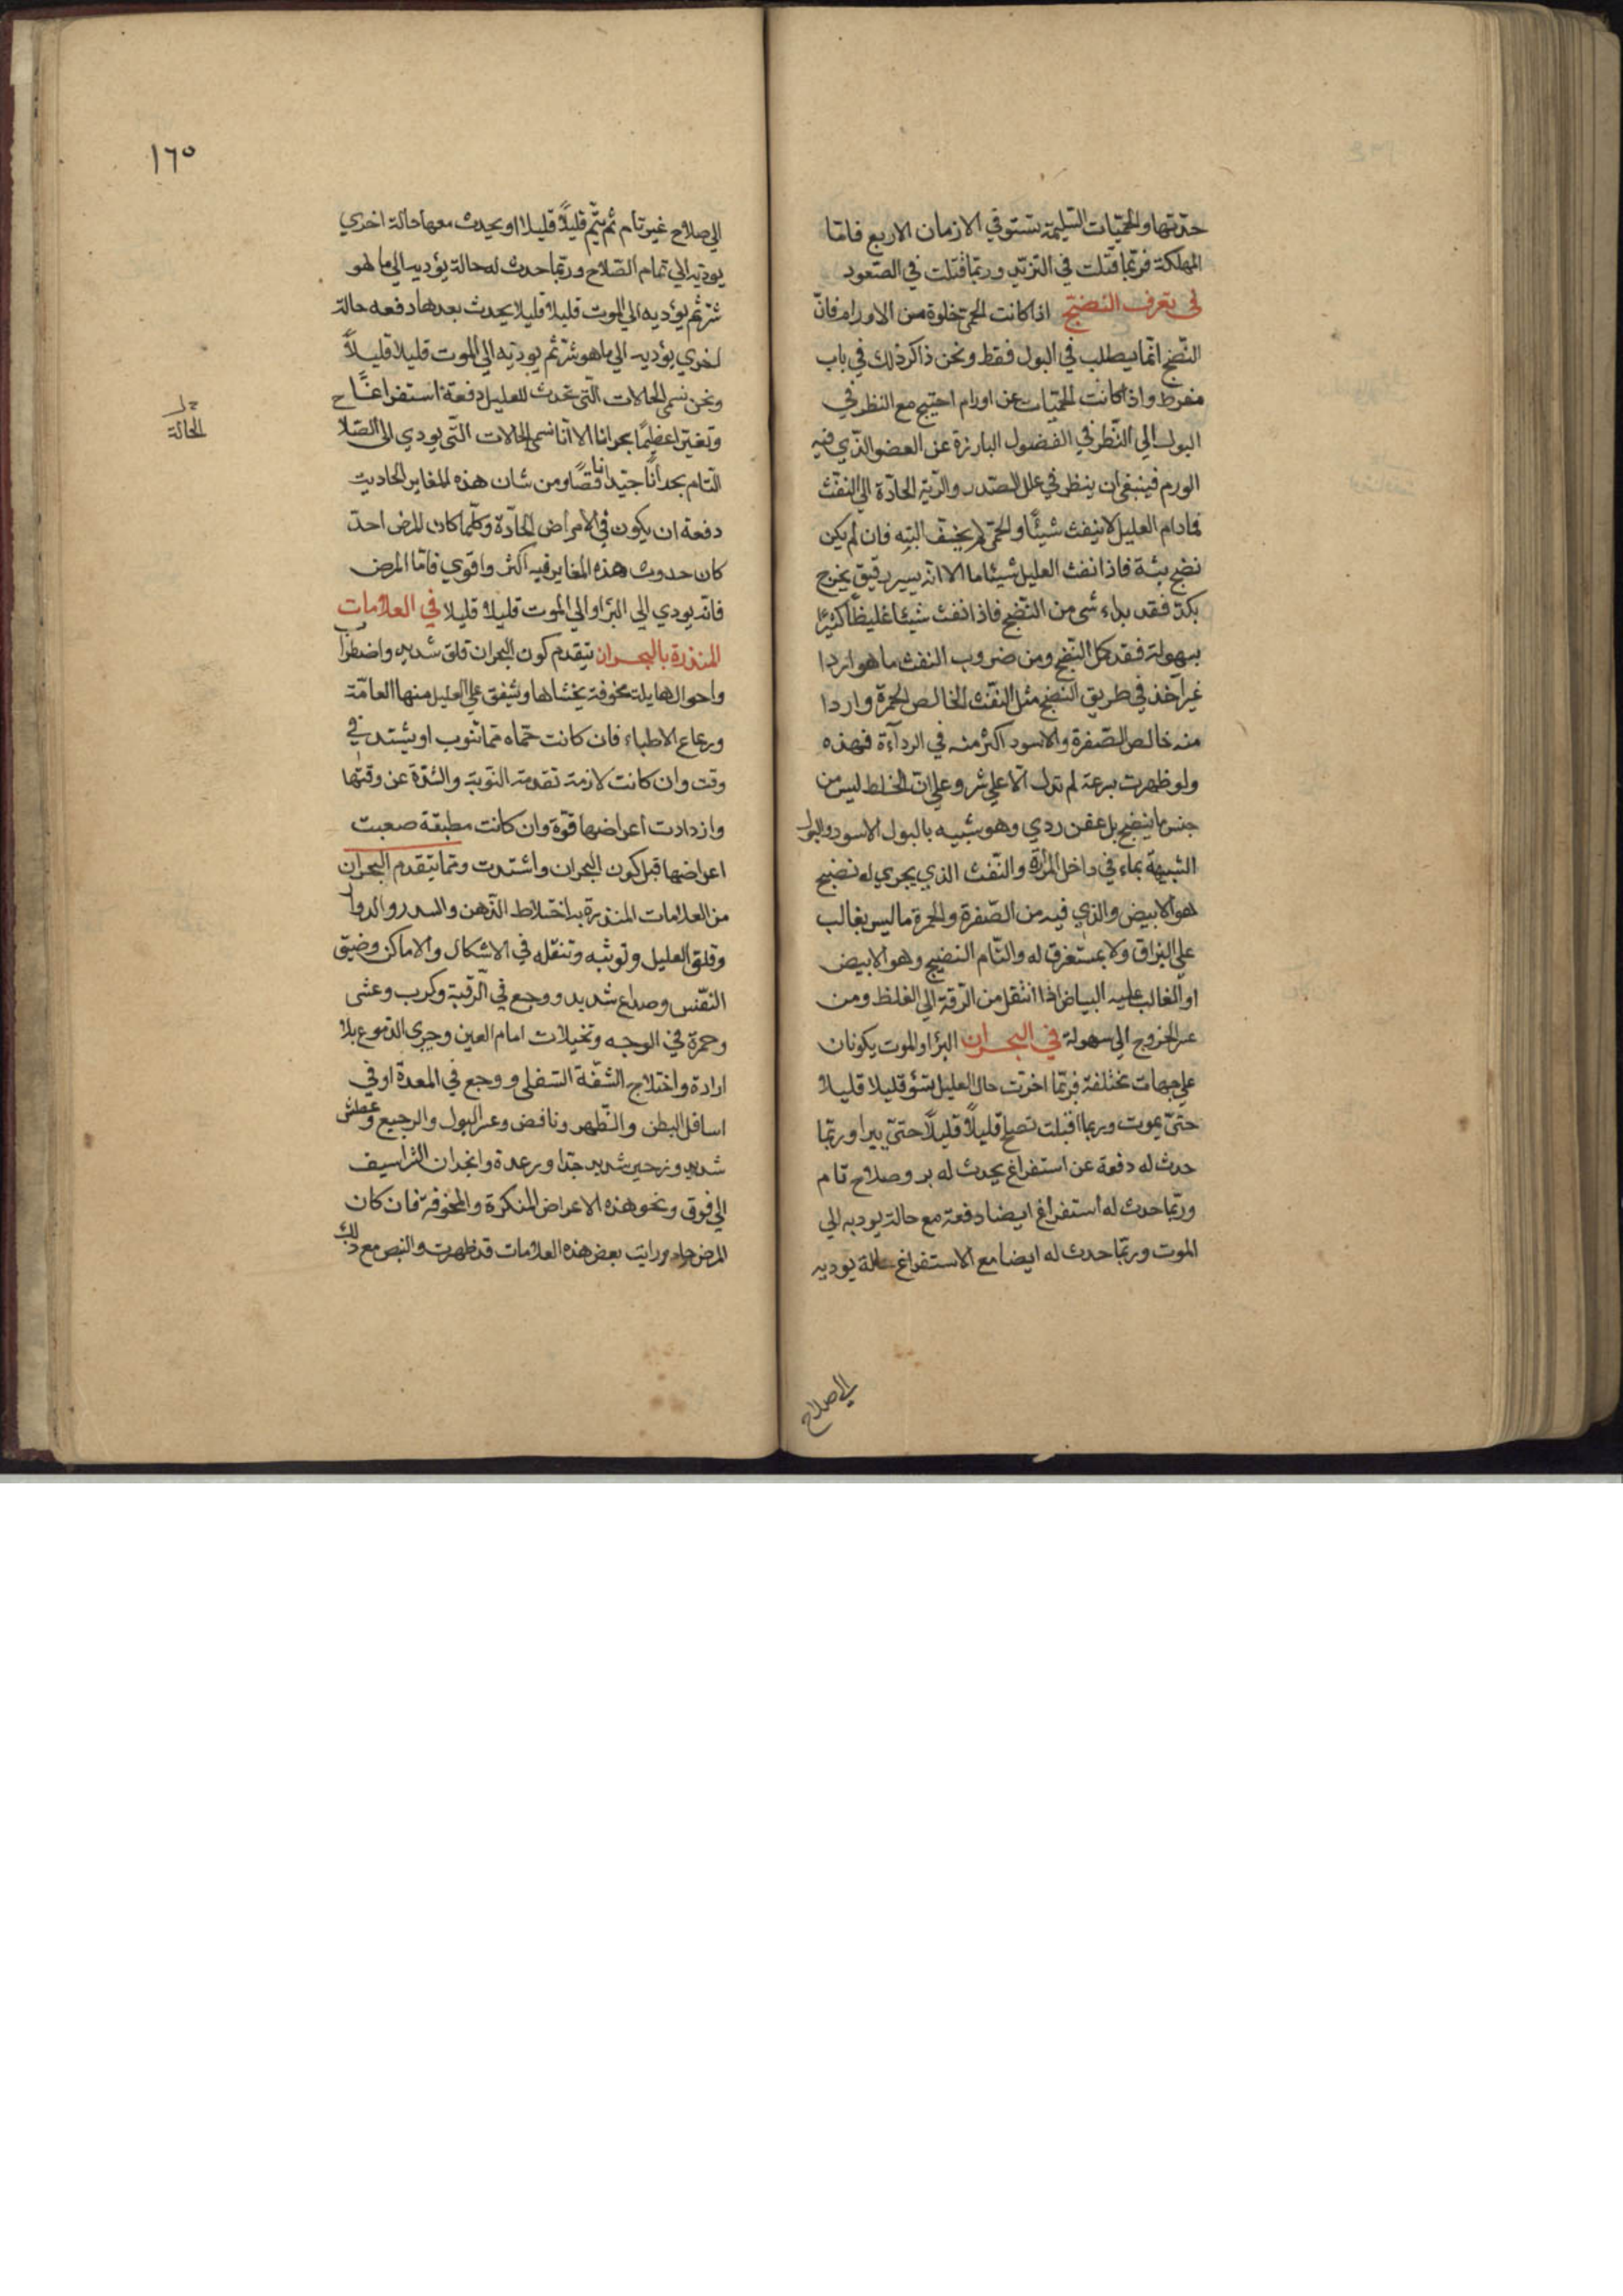 حدتها والحميات السليمة تستوفي الازمان الاربع فاما
المهلكة فربما قتلت في التزيد وربما قتلت في الصعود
في تعرف النضج اذا كانت الحمى خلوة من الاورام فان
النضج انما يطلب في البول فقط ونحن ذاكر ذلك في باب
مفرط واذا كانت الحميات عن اورام احتيج مع النظر في
البول الي النظر في الفضول البارزة عن العضو الذي فيه
الورم فينبغي ان ينظر في علل الصدر والرية الحادة الي النفث
فمادام العليل لا ينفث شيئا والحمى لم يخف البته فان لم يكن
نضج بتة فاذا نفث العليل شيئا ما الا انه يسير رقيق يخرج
بكد فقد بداء شي من النضج فاذا نفث شيئا غليظا كثيرا
بسهولة فقد كمل النضج ومن ضروب النفث ما هو اردا
غير آخذ في طريق النضج مثل النفث الخالص الحمرة واردا
منه خالص الصفرة والاسود اكثر منه في الرداءة فهذه
ولو ظهرت بسرعة لم تدل الا علي شر وعلي ان الخلط ليس من
جنس ما ينضج بل عفن ردي وهو شبيه بالبول الاسود والبول
الشبيهة بماء في داخل المرارة والنفث الذي يجري له نضج
هو الابيض والذي فيه من الصفرة والحمرة ما ليس بغالب
علي البزاق ولا بمستغرق له والتام النضيج وهو الابيض
او الغالب عليه البياض اذا انتقل من الرقة الي الغلظ ومن
عسر الخروج الي سهولة في البحران البرأ والموت يكونان
علي جهات مختلفة فربما اخرت حال العليل تسؤ قليلا قليلا
حتى يموت وربما اقبلت تصلح قليلاً قليلاً حتى يبرا وربما
حدث له دفعة عن استفراغ يحدث له برو صلاح تام
وربما حدث له استفراغ ايضا دفعة مع حالة يوديه الي
الموت وربما حدث له ايضا مع الاستفراغ حالة يوديه
الي صلاح
١٦٥
الي صلاح غير تام ثم يتم قليلاً قليلا او يحدث معها حالة اخري
يوديه الي تمام الصلاح وربما حدث له حالة يؤديه الي ما هو
شر ثم يؤديه الي الموت قليلا قليلا يحدث بعدها دفعه حالة
اخري يؤديه الي ما هو شر ثم يوديه الي الموت قليلا قليلاً
ونحن نسمي الحالات التي تحدث للعليل دفعة استفراغا ح
الحالة
وتغير اعظيما بحرانا الا انا نسمي الحالات التي يودي الي الصلا
التام بحراناً جيدا ناقصاً ومن شان هذه المغاير الحاديث
دفعة ان يكون في الامراض الحادة وكلما كان المرض احد
كان حدوث هذه المغاير فيه اكثر واقوي فاما المرض
فانه يودي الي البرا والي الموت قليلا قليلا في العلامات
المنذرة بالبحران يتقدم كون البحران قلق شديد واضطراب
واحوال هايلة مخوفة يخشاها ويشفق علي العليل منها العامة
ورعاع الاطباء فان كانت حماه مما تنوب او يشتد في
وقت وان كانت لازمة تقدمة النوبة والشدة عن وقتها
وازدادت اعراضها قوة وان كانت مطبقة صعبت
اعراضها قبل كون البحران واشتدت ومما يتقدم البحران
من العلامات المنذرة به اختلاط الذهن والسدر والدوار
وقلق العليل وتوثبه وتنقله في الاشكال والاماكن وضيق
النفس وصداع شديد ووجع في الرقبة وكرب وغشي
وحمرة في الوجه وتخيلات امام العين وجرى الدموع بلا
ارادة واختلاج الشفة السفلى ووجع في المعدة او في
اسافل البطن والظهر ونافض وعسر البول والرجيع وعطش
شديد وزحير شديد جدا ورعدة وانجذان الشراسيف
الي فوق ونحو هذه الاعراض المنكرة والمخوفة فان كان
المرض حاد ورايت بعض هذه العلامات قد ظهرت والنبض مع ذلك